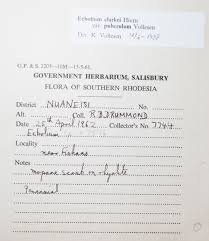 Ecbolium clarkei Hiern
var. puberulum Vollesen
Det. K. Vollesen
G.P. & S.
GOVERNMENT HERBARIUM, SALISBURY
FLORA OF SOUTHERN RHODESIA
District NUANETSI No.
Alt. Coll. R.B. DRUMMOND
Date 28th April 1962 Collector's No. 7744
Ecbolium
Locality
near Fishans
Notes
mopane scrub on rhyolite
Perennial